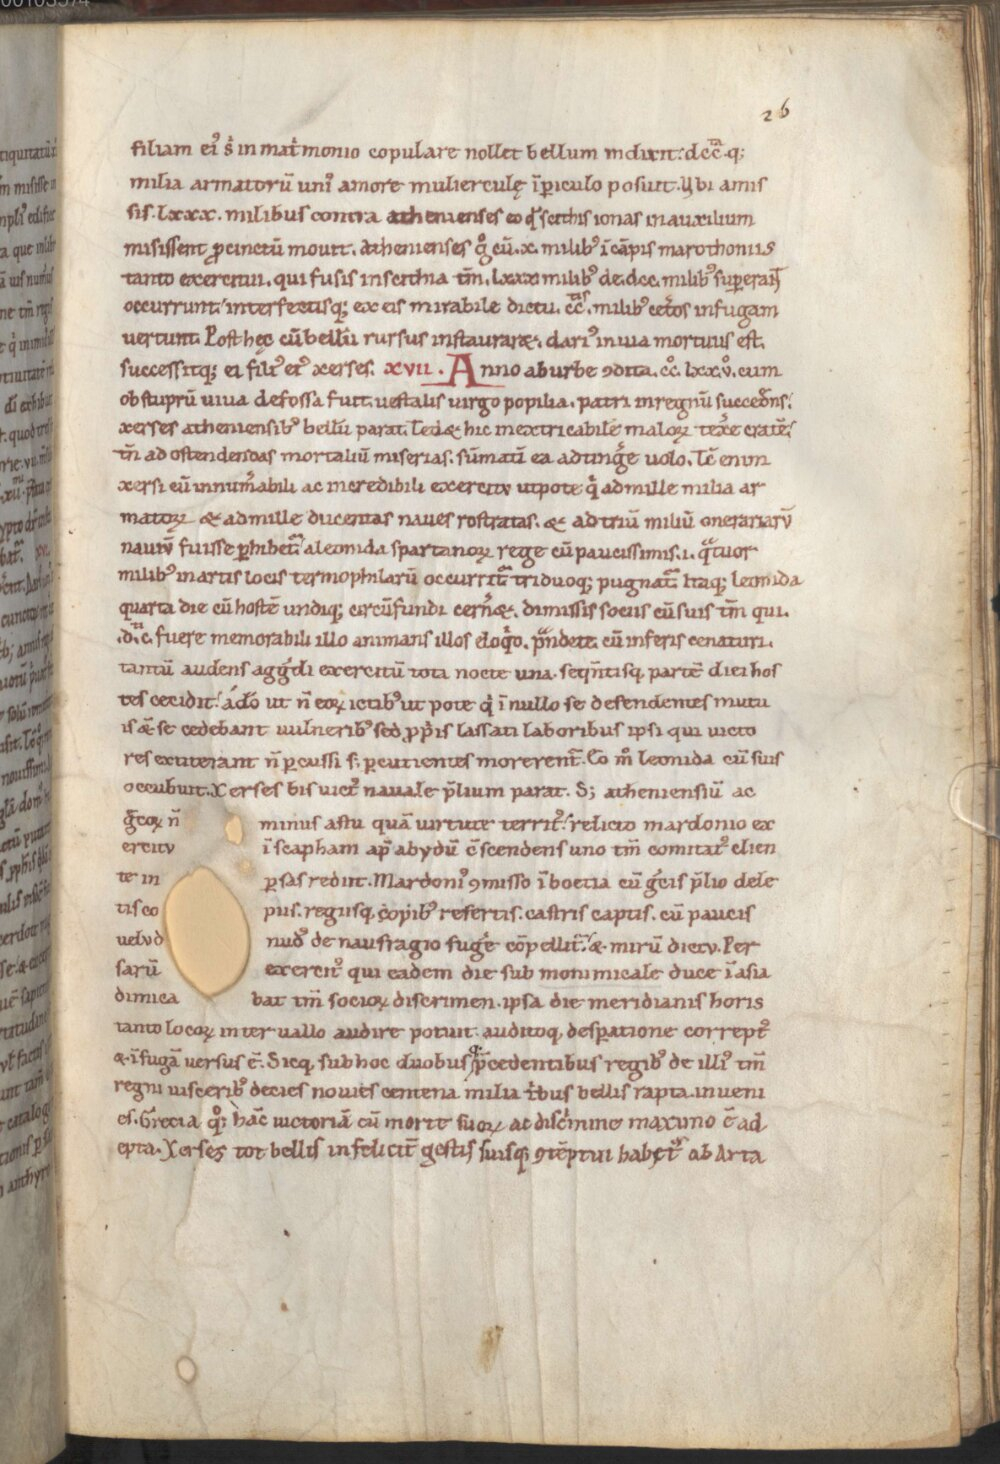 26
filiam ei᷒ s̉ in mat̉monio copulare nollet bellum indixit. dcc̄ᵗᵃ q;
milia armatorū uni᷒ amore mulierculę ĩ ꝑiculo posuit. Vbi amis
sis. lxxx. milibus contra athenienses eo qđ scithis ionas in auxilium
misissent ꝓcinctū mouit. Athenienses g̊ cū. x. milib᷒ ĩ cāpis marothoniis
tanto exercitui, qui fusis in scithia tm̄. lxxx milib᷒ de. dcc. milib᷒ suꝑerant̄
occurrunt. interfectisq; ex eis mirabile dictu. cc̄ᵗⁱˢ milib᷒ cet̉os in fugam
vertunt. Post hęc cū bellū rursus instauraret. dari᷒ in uia mortuus est.
successitq; ei fili᷒ ei᷒ xerses. xvii. Anno ab urbe ꝯdita. cc̊. lxx.v̊. cum
ob stuprū uiua defossa fuit. uestalis uirgo popilia. patri in regnū succedens.
xerses atheniensib᷒ bellū parat. Ledæ hic inextricabile maloꝝ texe cratē.
tn̄ ad ostendendas mortaliū miserias. sūmatī ea adtinge uolo. Tc̄ enim
xersi cū innum̉abili ac incredibili exercitu utpote q̉ ad mille milia ar
matoꝝ & ad mille ducentas naues rostratas. & ad triū miliū onerariarū
nauiū fuisse ꝑhibet᷑ a leonida spartanoꝝ rege cū paucissimis. i. qᵃtuor
milib᷒ in artis locis termophilarū occurrit᷑ triduoq; pugnat᷑. Itaq; leonida
quarta die cū hostē undiq; circūfundi cern̉et. dimissis sociis cū suis tm̄ qui.
.d.c. fuere memorabili illo animans illos eloq̊o. p̄ndete cū inferis cenaturi.
tantū audens agg̉di exercitū tota nocte una. seqn̄tisq. partē diei hos
tes cecidit. ádo̊ ut n̄ eoꝝ ictib᷒ ut pote q̉ ĩ nullo se defendentes mutu
is & se cedebant uulnerib᷒ sed ꝓpͥis lassati laboribus ipsi qui uicto
res extiterant n̄ ꝑcussi s; ꝑcutientes morerent᷑. Eo m̊ leonida cū suis
occubuit. Xerses bis uict᷒ nauale p̄lium parat. S; atheniensiū ac
g̉coꝝ n̄ minus astu quā uirtute territ᷒. relicto mardonio ex
ercitu ĩ scapham ap̄ abydū c̄scendens uno tm̄ comitat᷒ clien
te in ꝑsas rediit. Mardoni᷒ ꝯmisso ĩ boetia cū g̉cis p̄lio dele
tis co piis. regiisq. copiib᷒ refertis. castris captis. cū paucis
uelud nud᷒ de naufragio fuge cōpellit᷑. & mirū dictu. Per
sarū exercit᷒ qui eadem die sub monimicale duce ĩ asia
dimica bat tm̄ socioꝝ discrimen. ipsa die meridianis horis
tanto locoꝝ interuallo audire potuit auditoq. desꝑatione corrept᷒
& ĩ fugā versus ē. Sicq. sub hoc duobus p̄cedentibus regib᷒ de illi᷒ tm̄
regni uiscerib᷒ decies nouies centena milia t̉bus bellis rapta inueni
es. Grecia q̊; hāc uictoriā cū morte suoꝝ ac disc̉mine maximo ē ad
epta. Xerses tot bellis infelicit᷑ gestis suisq; ꝯtēptui habet᷑ ab Arta